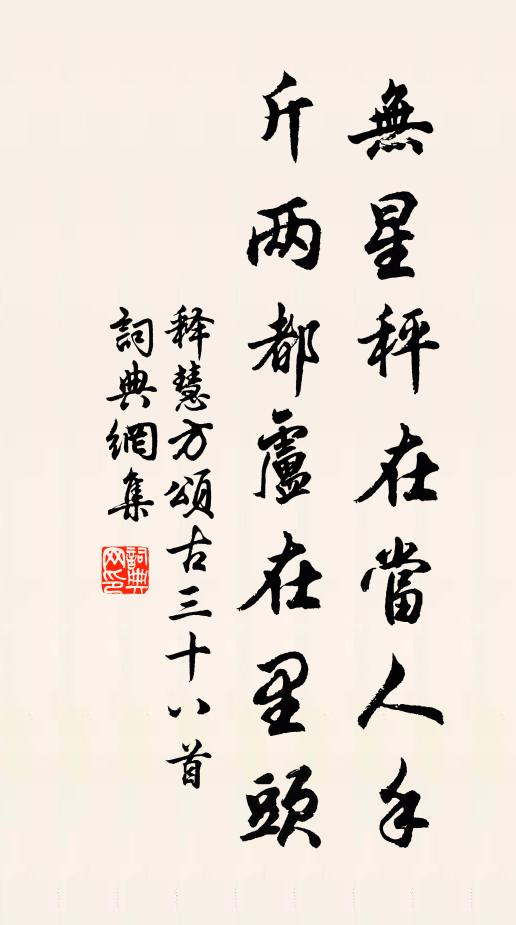 無星秤在當人手
斤两都盧在里頭
释慧方頌古三十八首
詞典網集
詞典网印